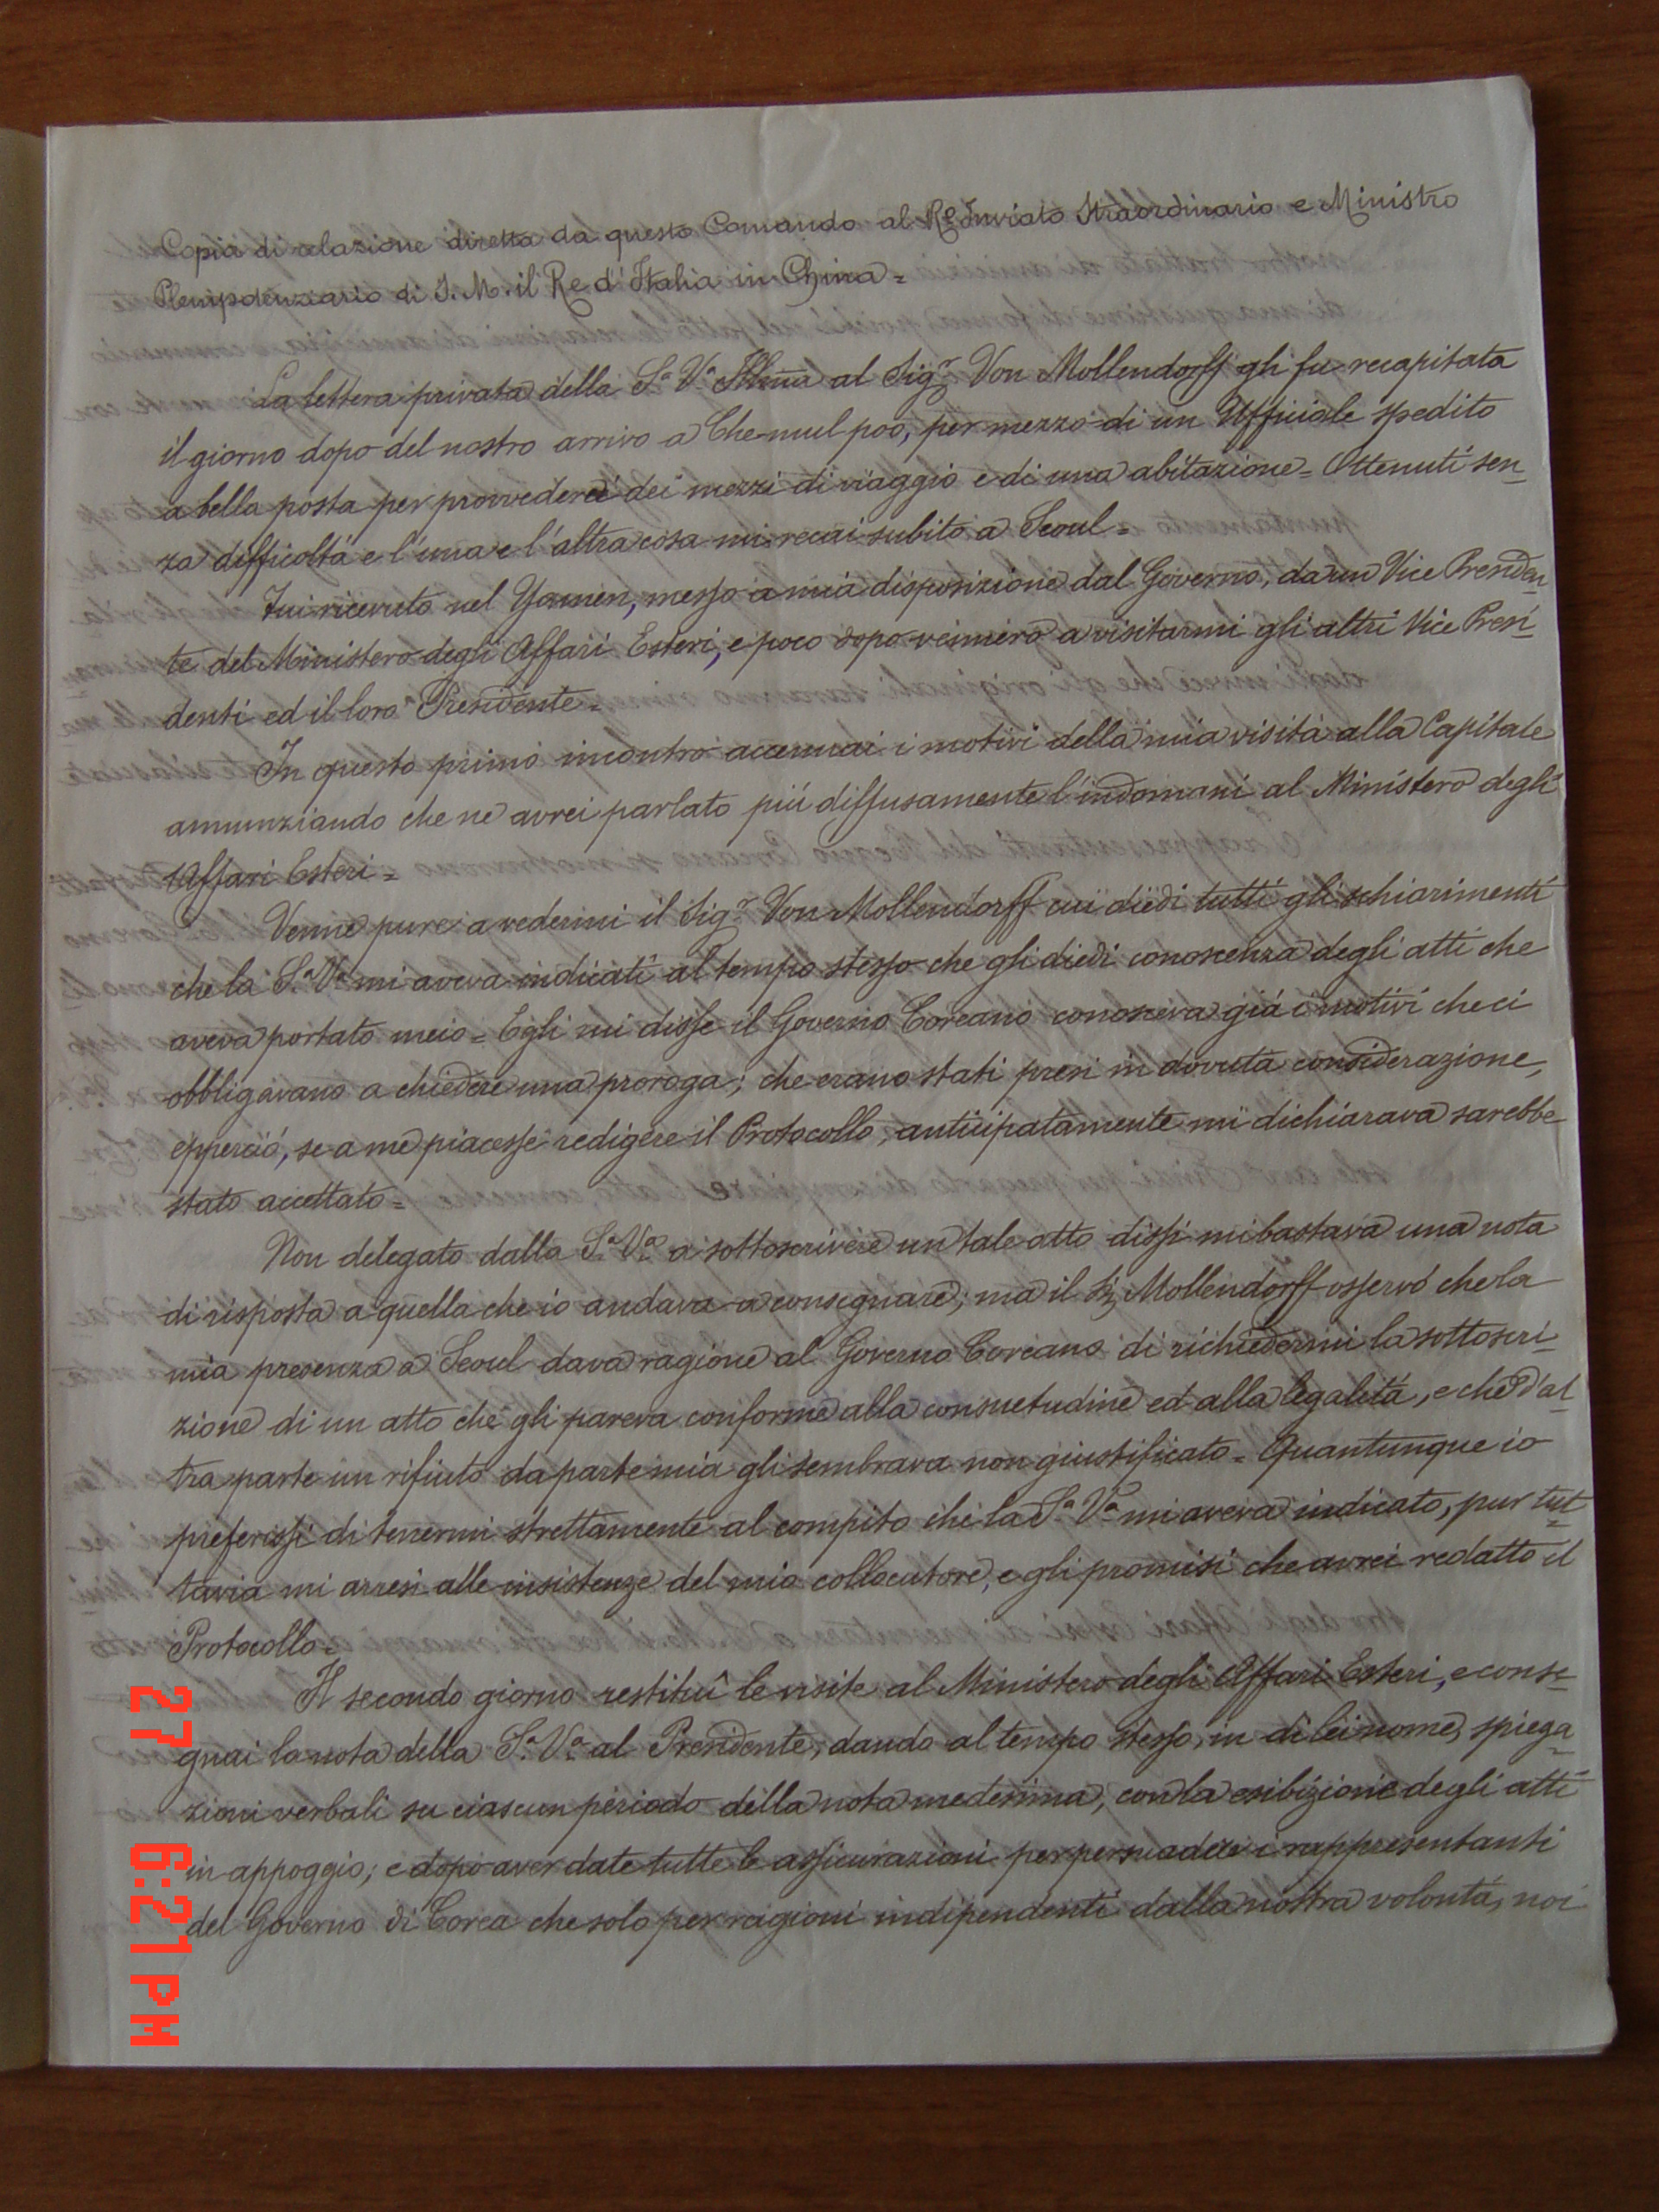 Copia di relazione diretta da questo Comando al R.º Inviato Straordinario e Ministro
Plenipotenziario di S. M. il Re d'Italia in China =
La lettera privata della S.ª V.ª Illma al Sig.r Von Mollendorff gli fu recapitata
il giorno dopo del nostro arrivo a Che-mul poo, per mezzo di un Ufficiale spedito
a bella posta per provvederci dei mezzi di viaggio e di una abitazione = Ottenuti sen-
za difficoltá e l'una e l'altra cosa mi recai subito a Seoul =
Fui ricevuto nel Yamen, messo a mia disposizione dal Governo, da un Vice Presiden-
te del Ministero degli Affari Esteri, e poco dopo vennero a visitarmi gli altri Vice Presi-
denti ed il loro Presidente =
In questo primo incontro accennai i motivi della mia visita alla Capitale
annunziando che ne avrei parlato piú diffusamente l'indomani al Ministero degli
Affari Esteri =
Venne pure a vedermi il Sig.r Von Mollendorff cui diedi tutti gli schiarimenti
che la S.ª V.ª mi aveva indicati al tempo stesso che gli diedi conoscenza degli atti che
aveva portato meco = Egli mi disse il Governo Coreano conosceva giá i motivi che ci
obbligavano a chiedere una proroga; che erano stati presi in dovuta considerazione,
epperció, se a me piacesse redigere il Protocollo, anticipatamente mi dichiarava sarebbe
stato accettato =
Non delegato dalla S.ª V.ª a sottoscrivere un tale atto dissi mi bastava una nota
di risposta a quella che io andava a consegnare; ma il Sig Mollendorff osservó che la
mia presenza a Seoul dava ragione al Governo Coreano di richiedermi la sottoscri-
zione di un atto che gli pareva conforme alla consuetudine ed alla legalitá, e che d'al-
tra parte un rifiuto da parte mia gli sembrava non giustificato = Quantunque io
preferissi di tenermi strettamente al compito che la S.ª V.ª mi aveva indicato, pur tut-
tavia mi arresi alle insistenze del mio collocutore, e gli promisi che avrei redatto il
Protocollo =
Il secondo giorno restituî le visite al Ministero degli Affari Esteri, e conse-
gnai la nota della S.ª V.ª al Presidente, dando al tempo stesso, in di lei nome, spiega-
zioni verbali su ciascun periodo della nota medesima, con la esibizione degli atti
in appoggio; e dopo aver date tutte le assicurazioni per persuadere i rappresentanti
del Governo di Corea che solo per ragioni indipendenti dalla nostra volontá, noi
27 6:21 PM